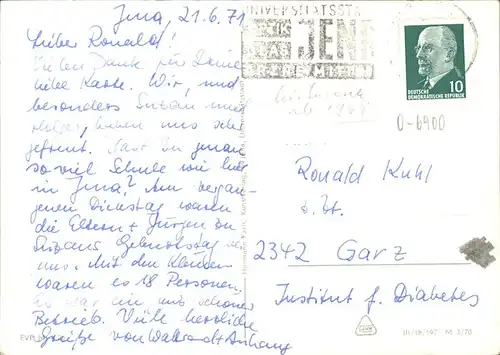 Jena, 21.6.71
Lieber Ronald!
Vielen Dank für Deine
liebe Karte. Wir, und
besonders Suzan und
Holger, haben uns sehr
gefreut. Hast Du genau
so viel Schule wie hier
in Jena? Am vergan-
genen Dienstag waren
die Eltern + Jürgen zu
Suzans Geburtstag bei
uns. Mit den Kindern
waren es 18 Personen.
Es war ein schöner
Betrieb. Viele herzliche
Grüße von Waltraud + Anhang
UNIVERSITÄTSSTA
JENA
DEUTSCHE
DEMOKRATISCHE REPUBLIK
10
O-6900
Ronald Kuhl
z. Zt.
2342 Garz
Institut f. Diabetes
III/18/197 M 3/70
EVP